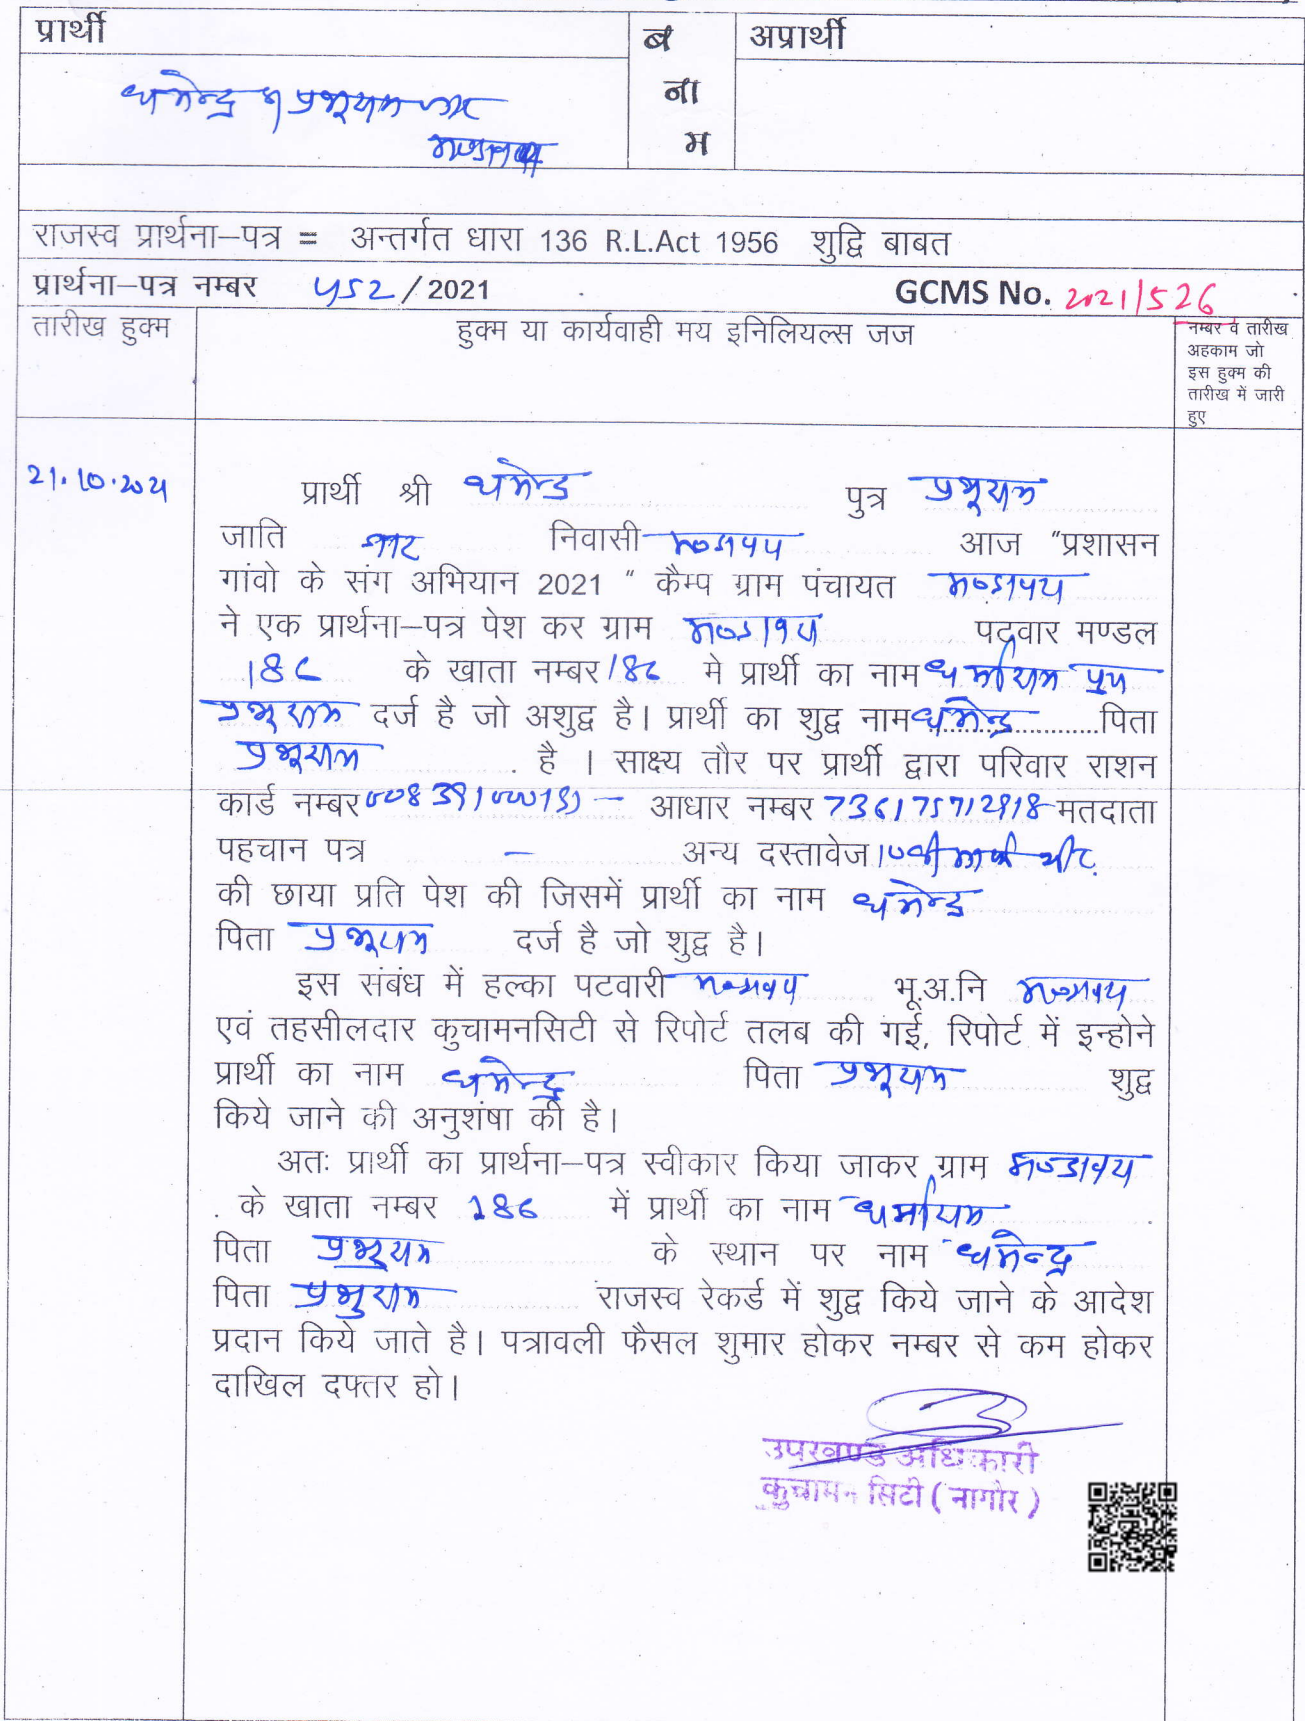 प्रार्थी
ब
ना
म
अप्रार्थी
धर्मेन्द्र s/ प्रभूराम जाट
मण्डावरा
राजस्व प्रार्थना–पत्र = अन्तर्गत धारा 136 R.L.Act 1956 शुद्वि बाबत
प्रार्थना–पत्र नम्बर 452/2021 GCMS No. 2021/526
तारीख हुक्म
हुक्म या कार्यवाही मय इनिलियल्स जज
नम्बर व तारीख
अहकाम जो
इस हुक्म की
तारीख में जारी
हुए
21.10.2021
प्रार्थी श्री धर्मेन्द्र पुत्र प्रभूराम
जाति जाट निवासी मण्डावरा आज "प्रशासन
गांवो के संग अभियान 2021 " कैम्प ग्राम पंचायत मण्डावरा
ने एक प्रार्थना–पत्र पेश कर ग्राम मण्डावरा पटवार मण्डल
186 के खाता नम्बर 186 मे प्रार्थी का नाम धर्माराम पुत्र
प्रभूराम दर्ज है जो अशुद्व है। प्रार्थी का शुद्व नाम धर्मेन्द्र पिता
प्रभूराम है । साक्ष्य तौर पर प्रार्थी द्वारा परिवार राशन
कार्ड नम्बर – आधार नम्बर 736175712918 मतदाता
पहचान पत्र – अन्य दस्तावेज 10वी मार्क शीट
की छाया प्रति पेश की जिसमें प्रार्थी का नाम धर्मेन्द्र
पिता प्रभूराम दर्ज है जो शुद्व है।
इस संबंध में हल्का पटवारी मण्डावरा भू.अ.नि मण्डावरा
एवं तहसीलदार कुचामनसिटी से रिपोर्ट तलब की गई, रिपोर्ट में इन्होने
प्रार्थी का नाम धर्मेन्द्र पिता प्रभूराम शुद्व
किये जाने की अनुशंषा की है।
अतः प्रार्थी का प्रार्थना–पत्र स्वीकार किया जाकर ग्राम मण्डावरा
. के खाता नम्बर 186 में प्रार्थी का नाम धर्माराम
पिता प्रभूराम के स्थान पर नाम धर्मेन्द्र
पिता प्रभुराम राजस्व रेकर्ड में शुद्व किये जाने के आदेश
प्रदान किये जाते है। पत्रावली फैसल शुमार होकर नम्बर से कम होकर
दाखिल दफ्तर हो।
उपखण्ड अधिकारी
कुचामन सिटी (नागौर)